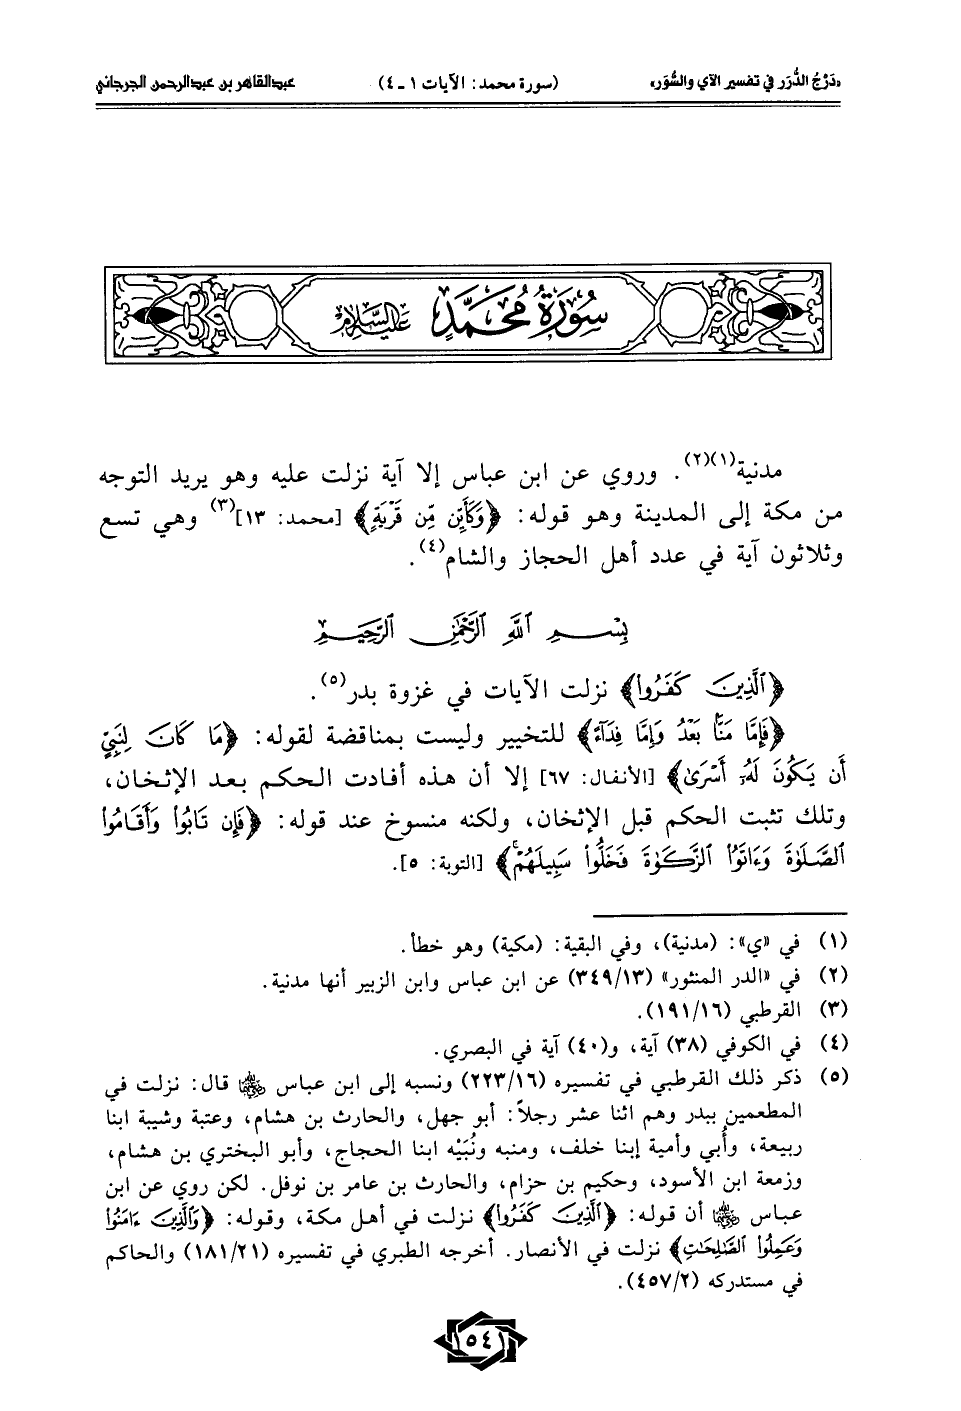 «دَرْجُ الدُّرَر في تفسير الآي والسُّوَر» (سورة محمد: الآيات ١ ـ ٤) عبدالقاهر بن عبدالرحمن الجرجاني
سُورَةُ مُحَمَّدٍ عَلَيهِ السَّلَام
مدنية(١)(٢). وروي عن ابن عباس إلا آية نزلت عليه وهو يريد التوجه
من مكة إلى المدينة وهو قوله: ﴿وَكَأَيِّن مِّن قَرْيَةٍ﴾ [محمد: ١٣](٣) وهي تسع
وثلاثون آية في عدد أهل الحجاز والشام(٤).
بِسْمِ ٱللَّهِ ٱلرَّحْمَٰنِ ٱلرَّحِيمِ
﴿ٱلَّذِينَ كَفَرُوا۟﴾ نزلت الآيات في غزوة بدر(٥).
﴿فَإِمَّا مَنًّۢا بَعْدُ وَإِمَّا فِدَآءً﴾ للتخيير وليست بمناقضة لقوله: ﴿مَا كَانَ لِنَبِيٍّ
أَن يَكُونَ لَهُۥٓ أَسْرَىٰ﴾ [الأنفال: ٦٧] إلا أن هذه أفادت الحكم بعد الإثخان،
وتلك تثبت الحكم قبل الإثخان، ولكنه منسوخ عند قوله: ﴿فَإِن تَابُوا۟ وَأَقَامُوا۟
ٱلصَّلَوٰةَ وَءَاتَوُا۟ ٱلزَّكَوٰةَ فَخَلُّوا۟ سَبِيلَهُمْ﴾ [التوبة: ٥].
(١) في «ي»: (مدنية)، وفي البقية: (مكية) وهو خطأ.
(٢) في «الدر المنثور» (٣٤٩/١٣) عن ابن عباس وابن الزبير أنها مدنية.
(٣) القرطبي (١٩١/١٦).
(٤) في الكوفي (٣٨) آية، و(٤٠) آية في البصري.
(٥) ذكر ذلك القرطبي في تفسيره (٢٢٣/١٦) ونسبه إلى ابن عباس رضي الله عنهما قال: نزلت في
المطعمين ببدر وهم اثنا عشر رجلاً: أبو جهل، والحارث بن هشام، وعتبة وشيبة ابنا
ربيعة، وأُبي وأمية إبنا خلف، ومنبه ونُبَيْه ابنا الحجاج، وأبو البختري بن هشام،
وزمعة ابن الأسود، وحكيم بن حزام، والحارث بن عامر بن نوفل. لكن روي عن ابن
عباس رضي الله عنهما أن قوله: ﴿ٱلَّذِينَ كَفَرُوا۟﴾ نزلت في أهل مكة، وقوله: ﴿وَٱلَّذِينَ ءَامَنُوا۟
وَعَمِلُوا۟ ٱلصَّٰلِحَٰتِ﴾ نزلت في الأنصار. أخرجه الطبري في تفسيره (١٨١/٢١) والحاكم
في مستدركه (٤٥٧/٢).
١٥٤١